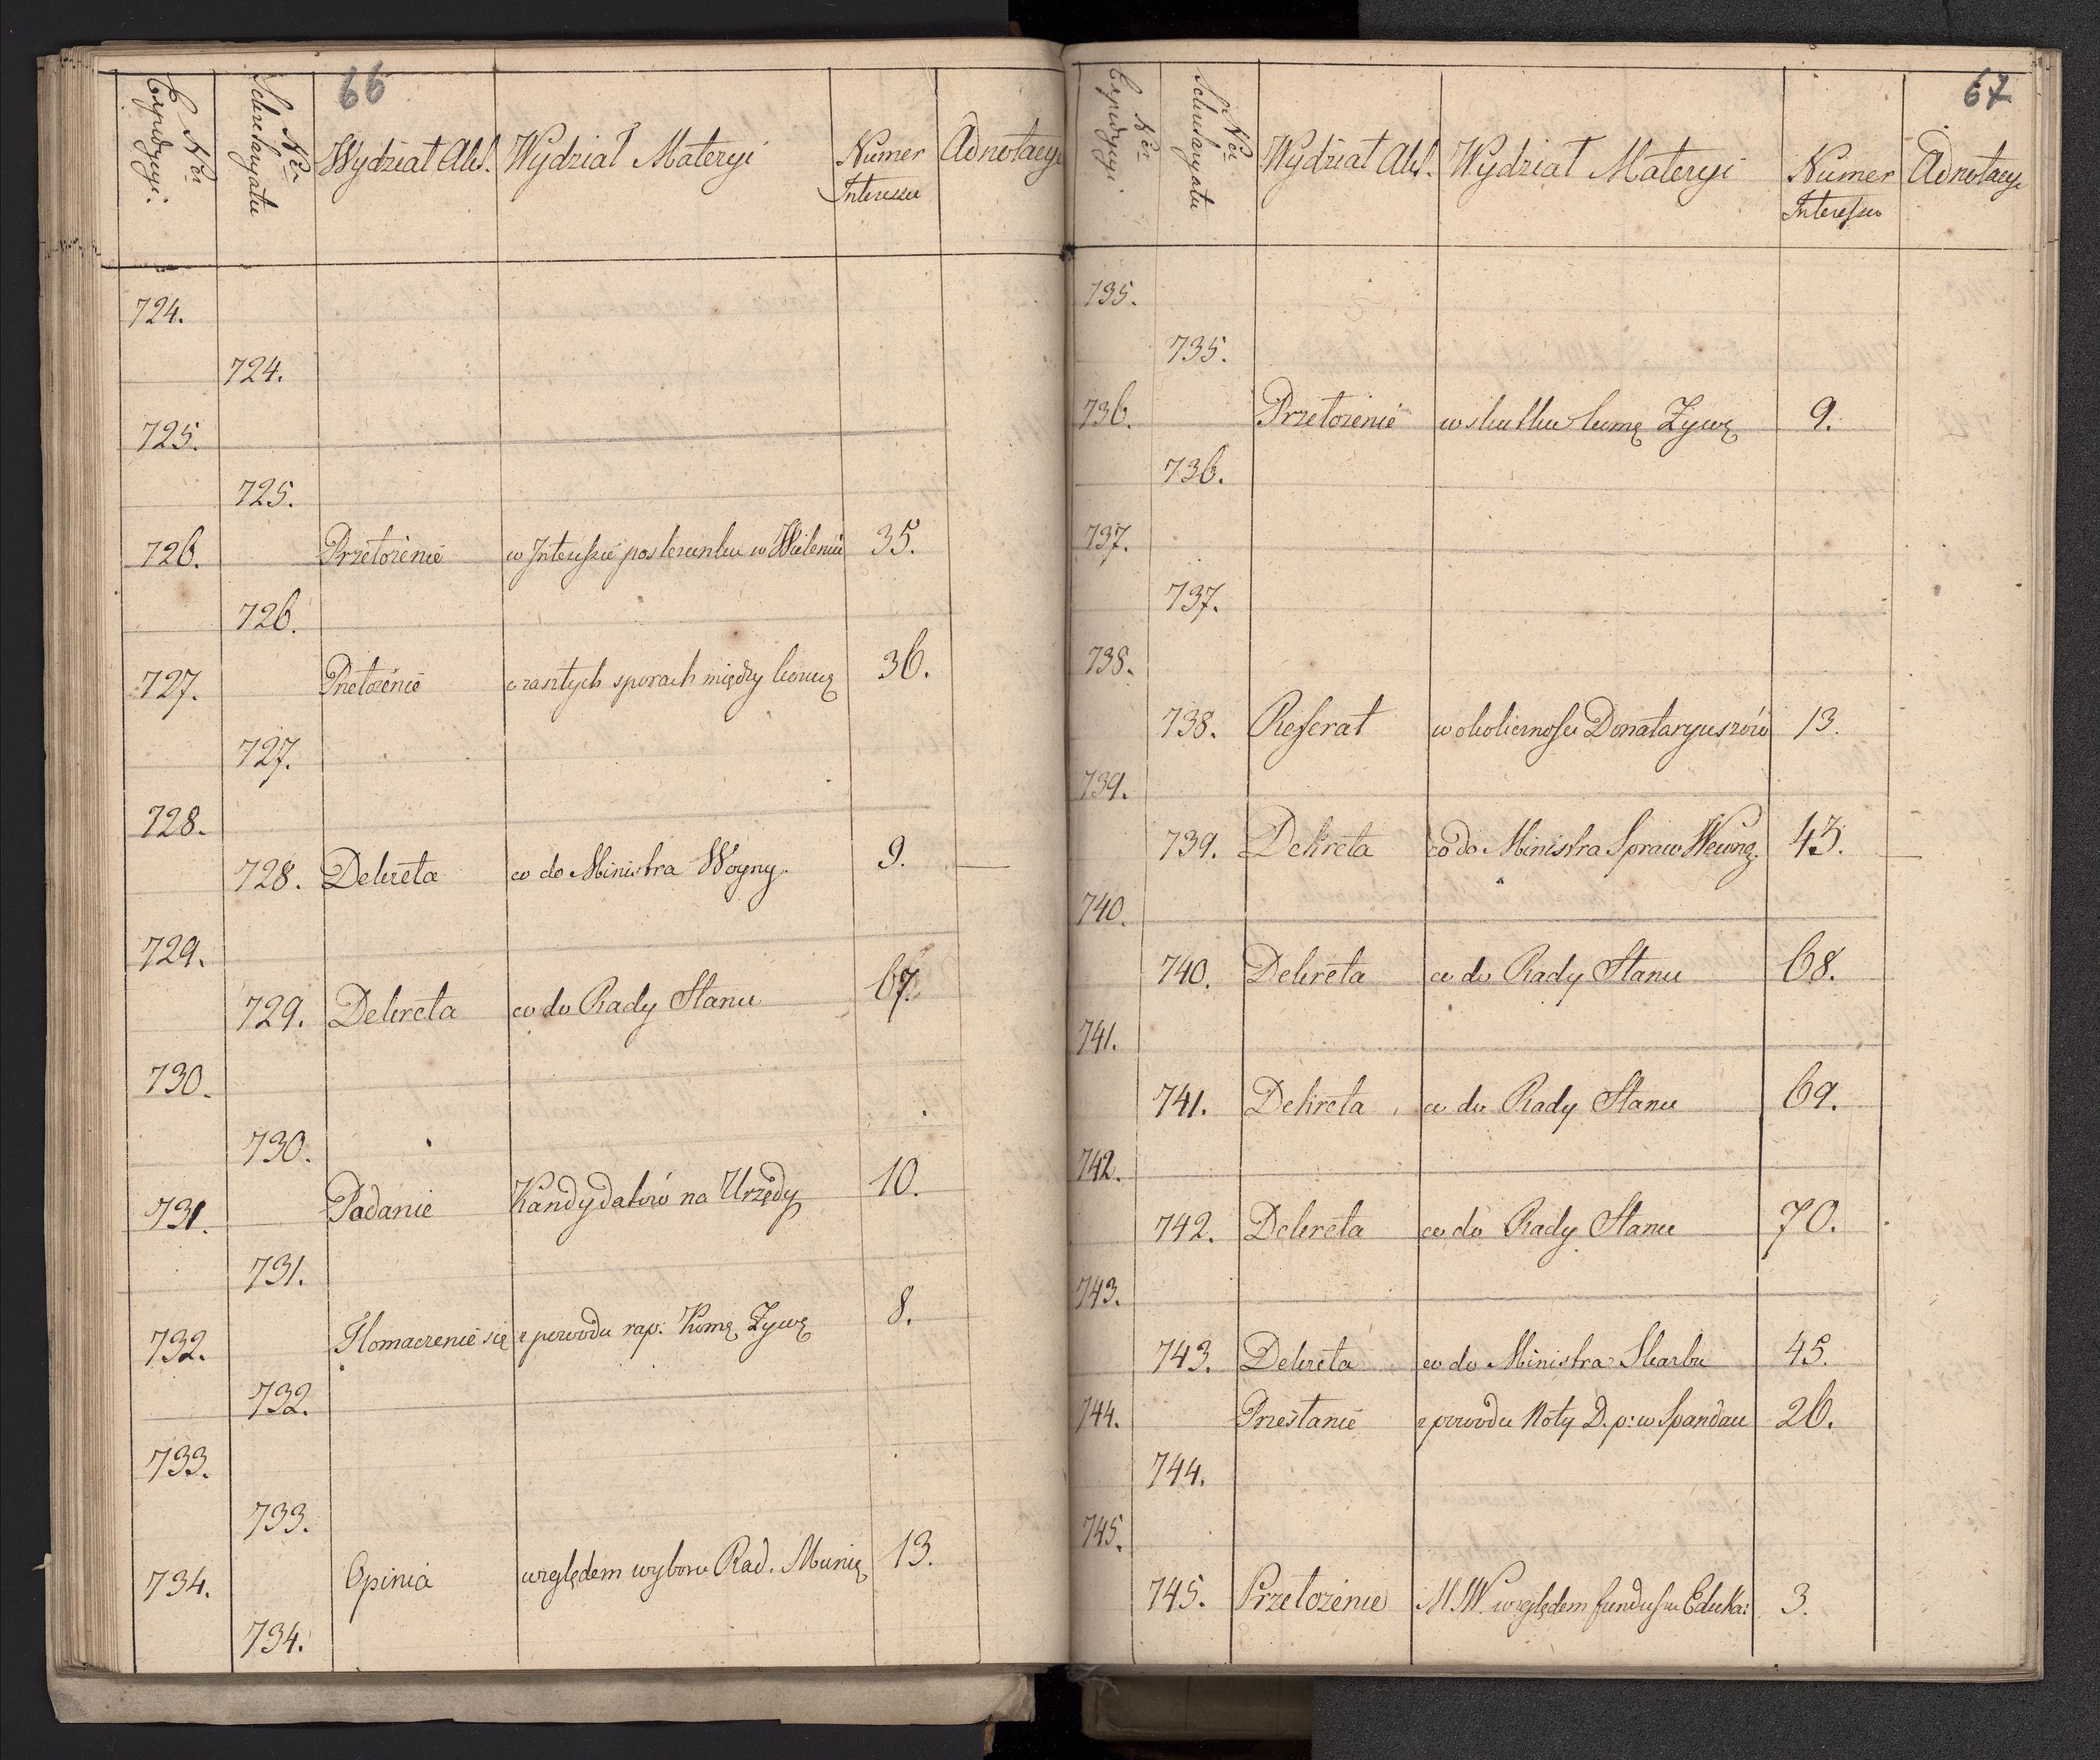 66
Nr Expedycyi.
Nr Sekretaryatu
Wydział Akt.
Wydział Materyi
Numer Interessu
Adnotacye
724.
724.
725.
725.
726. Przełożenie w Interessie posterunku w Wieleniu 35.
726.
727. Przełożenie zaszłych sporach między 36.
727.
728.
728. Dekreta co do Ministra Woyny. 9.
729.
729. Dekreta co do Rady Stanu 67.
730.
730.
731. Podanie Kandydatów na Urzędy 10.
731.
732. Tłomaczenie się z powodu rap: Komę Żywę 8.
732.
733.
733.
734. Opinia względem wyboru Rad. Munię 13.
734.
67
Nr Expedycyi
Nr Sekretaryatu
Wydział Akt.
Wydział Materyi
Numer Interessu
Adnotacye
735.
735.
736. Przełożenie w skutku komę Żywę 9.
736.
737.
737.
738.
738. Referat w okoliczności Donataryuszów 13.
739.
739. Dekreta co do Ministra Spraw Wewnę. 43.
740.
740. Dekreta co do Rady Stanu 68.
741.
741. Dekreta co do Rady Stanu 69.
742.
742. Dekreta co do Rady Stanu 70.
743.
743. Dekreta co do Ministra Skarbu 45.
744. Przesłanie z powodu Noty D. p: w Spandau 26.
744.
745.
745. Przełożenie M.W. względem funduszu Eduka: 3.